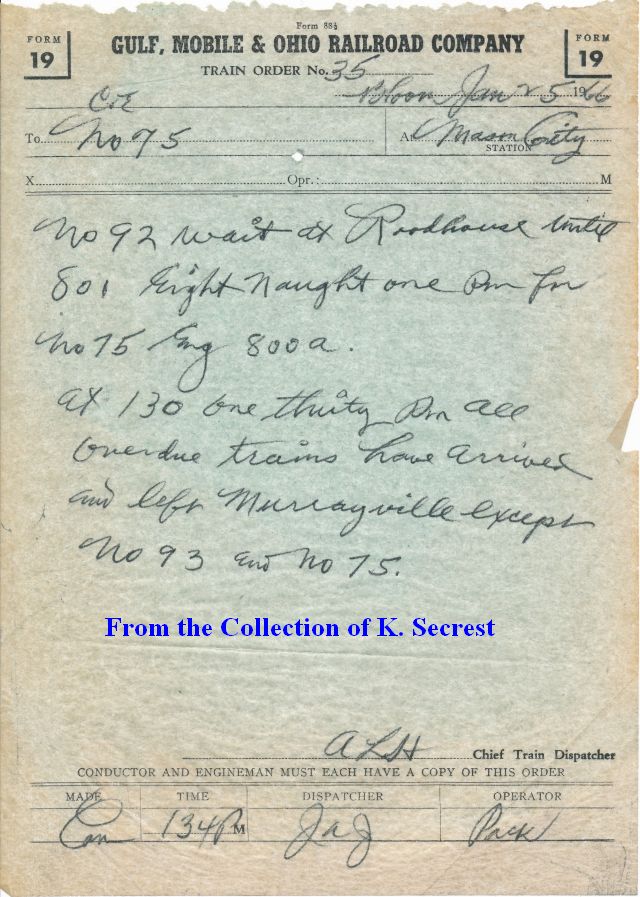 Form 88½
FORM 19
GULF, MOBILE & OHIO RAILROAD COMPANY
FORM 19
TRAIN ORDER No. 35
Bloom Jan 25 1966
C&E
To No 75 At Mason City
STATION
X Opr.: M
No 92 wait at Roodhouse until
801 Eight Naught one Pm for
No 75 Eng 800a.
at 130 one thirty Pm all
overdue trains have arrived
and left Murrayville except
No 93 and No 75.
From the Collection of K. Secrest
ALH Chief Train Dispatcher
CONDUCTOR AND ENGINEMAN MUST EACH HAVE A COPY OF THIS ORDER
MADE TIME DISPATCHER OPERATOR
Com 134P M JaJ Pack